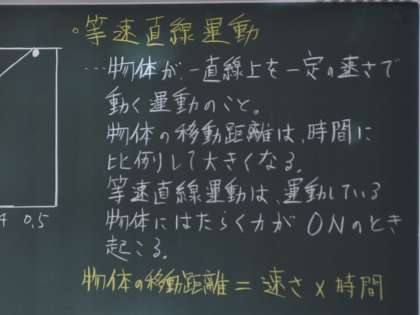 。等速直線運動
…物体が、一直線上を一定の速さで
動く運動のこと。
物体の移動距離は、時間に
比例して大きくなる。
等速直線運動は、運動している
物体にはたらく力が 0Nのとき
起こる。
物体の移動距離 = 速さ × 時間
4 0.5